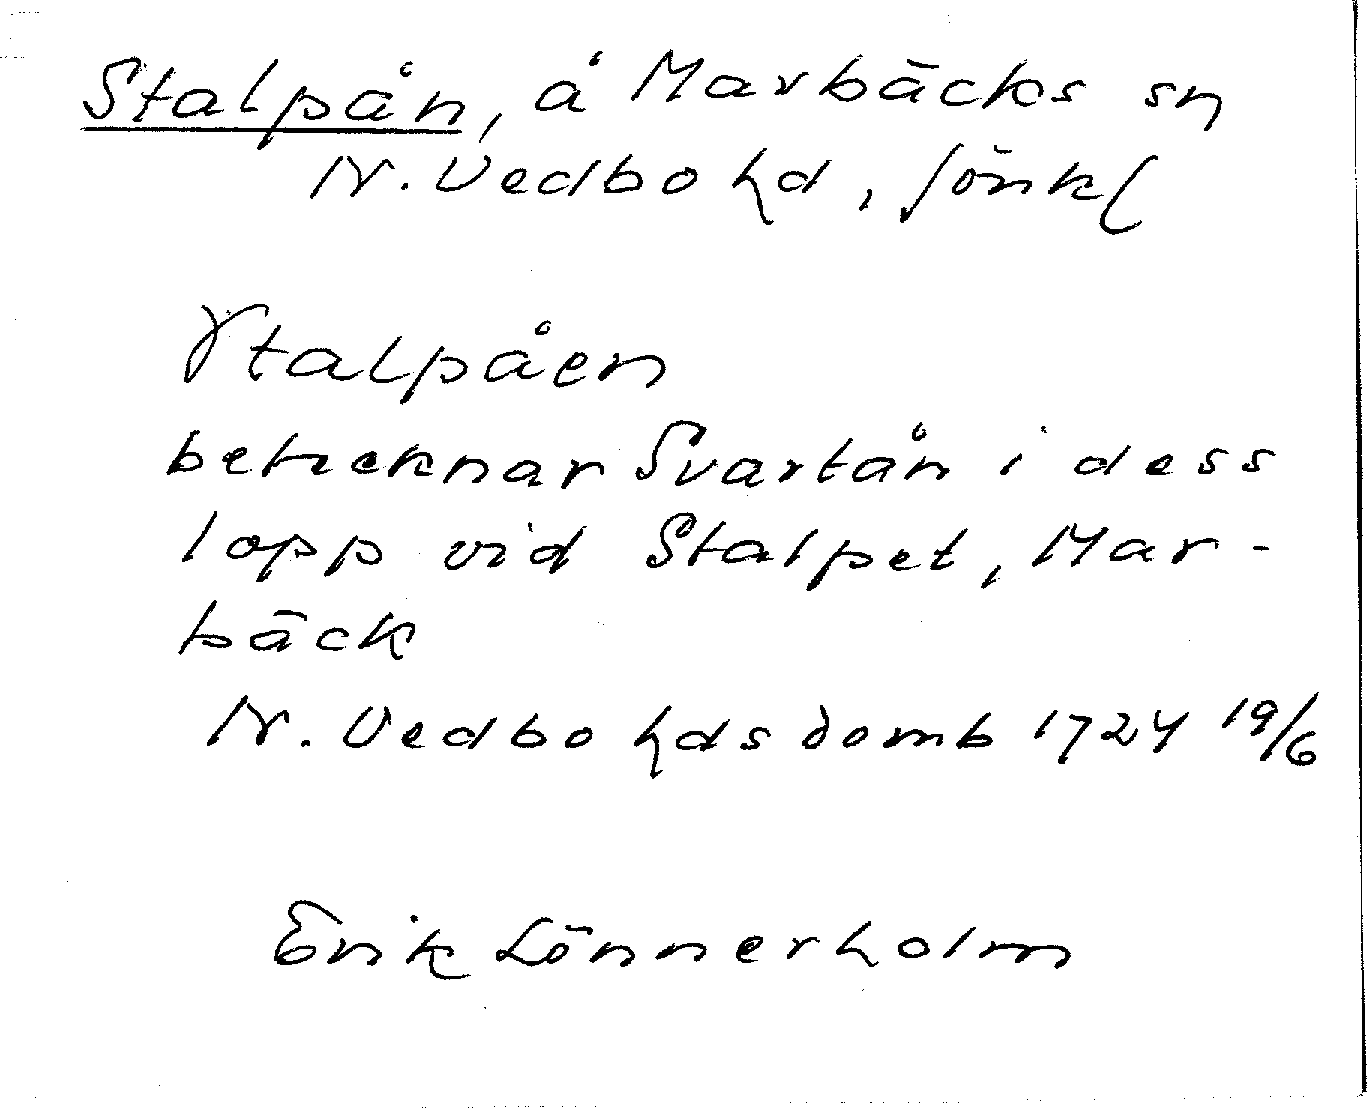 Stalpån, å Marbäcks sn
N. Vedbo hd, Jönk l
Stalpåen
betecknar Svartån i dess
lopp vid Stalpet, Mar-
bäck
N. Vedbo hds domb 1724 19/6
Erik Lönnerholm